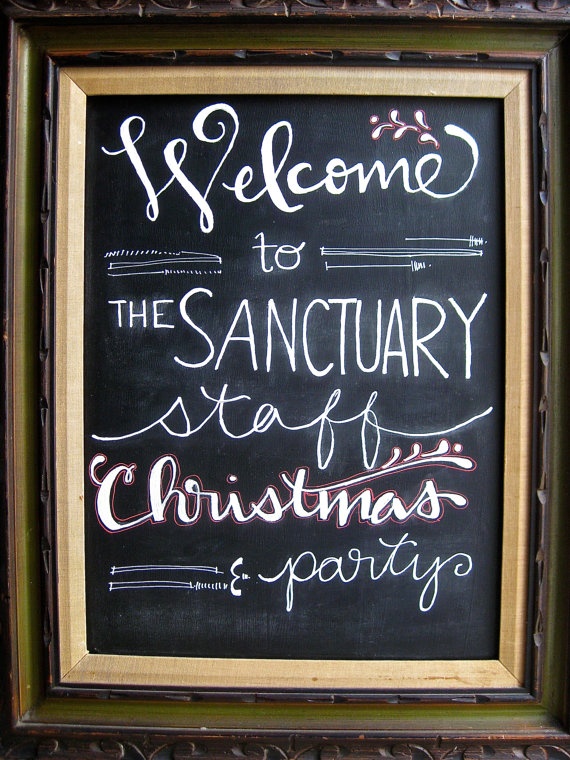 Welcome
to
THE SANCTUARY
staff
Christmas
party